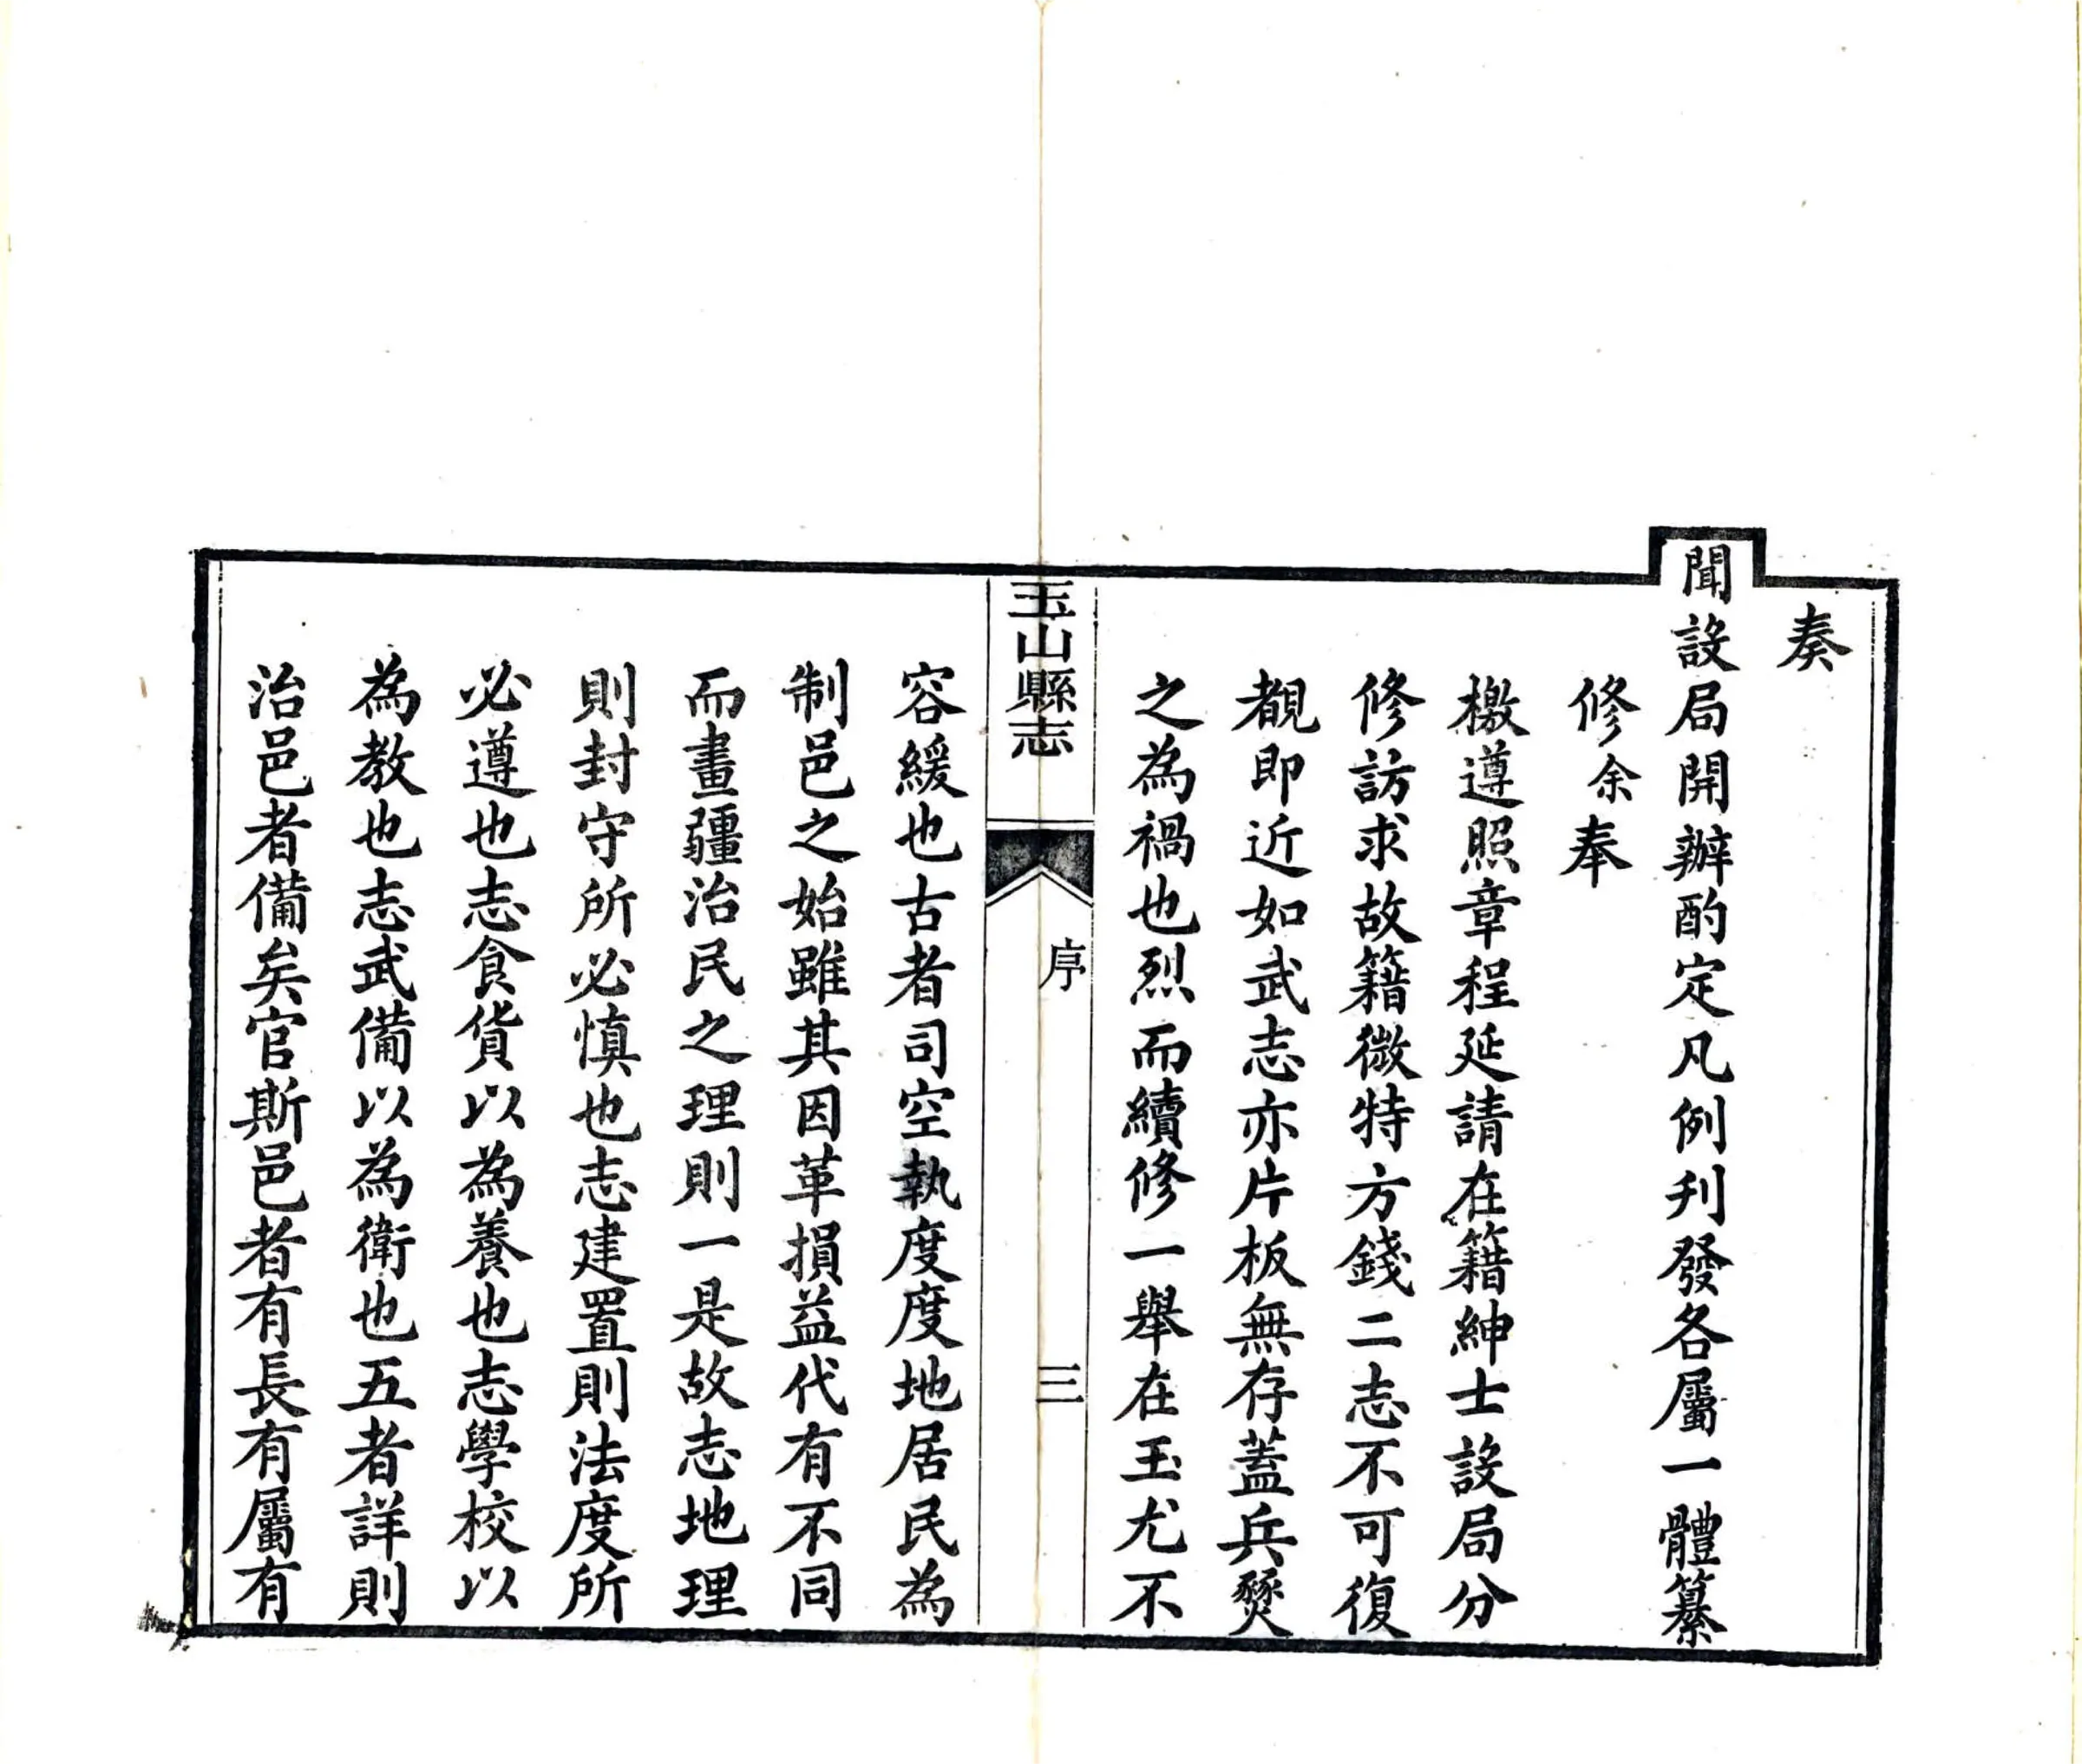 奏
聞設局開辦酌定凡例刋發各屬一體纂
修余奉
檄遵照章程延請在籍紳士設局分
修訪求故籍微特方錢二志不可復
覩即近如武志亦片板無存蓋兵燹
之為禍也烈而續修一舉在玉尤不
玉山縣志
序
三
容緩也古者司空執度度地居民為
制邑之始雖其因革損益代有不同
而畫疆治民之理則一是故志地理
則封守所必慎也志建置則法度所
必遵也志食貨以為養也志學校以
為教也志武備以為衛也五者詳則
治邑者備矣官斯邑者有長有屬有